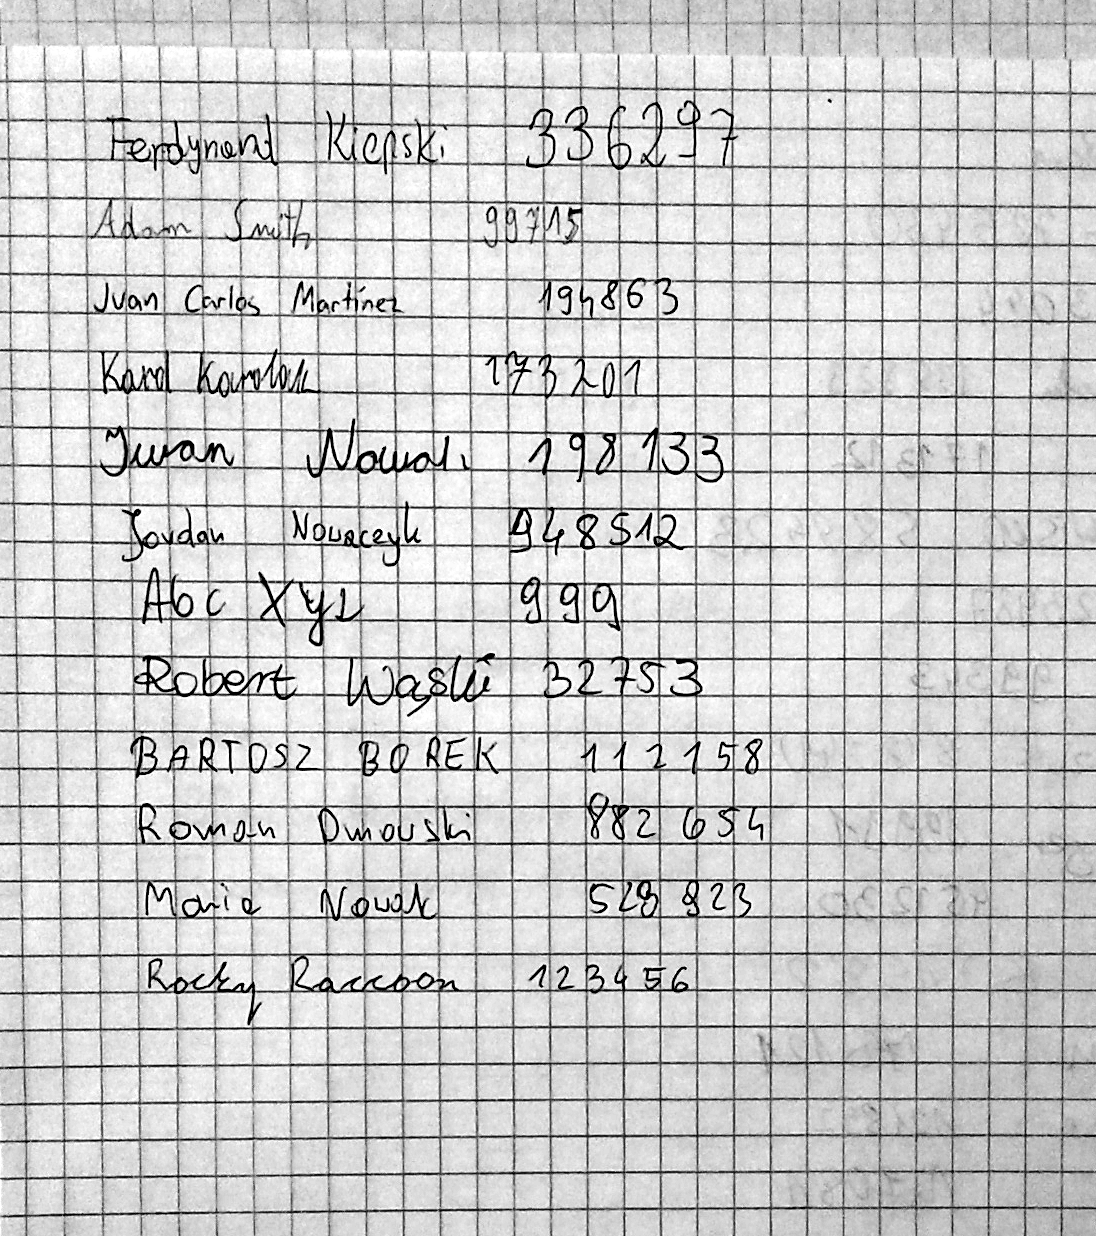 Ferdynand Kiepski 336297
Adam Smith 99715
Juan Carlos Martínez 194863
Karol Karolak 173201
Iwan Nowak 198133
Jordan Nowaczyk 948512
Abc Xyz 999
Robert Wąski 32753
BARTOSZ BOREK 112158
Roman Dmowski 882654
Maria Nowak 529823
Rocky Raccoon 123456